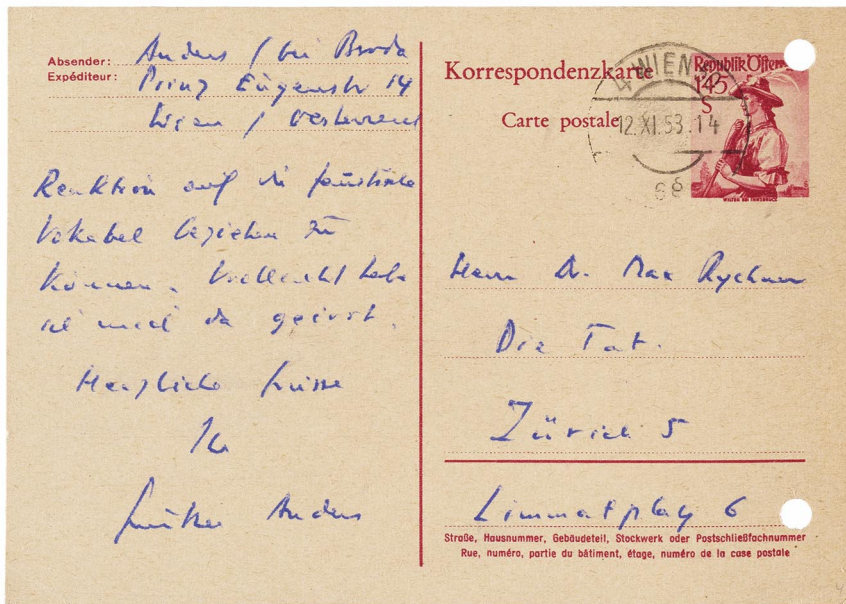 Absender:
Expéditeur:
Anders / bei Broda
Prinz Eugenstr 14
Wien / Oesterreich
Reaktion auf die
Vokabel beziehen zu
können. Vielleicht habe
ich mich da geirrt.
Herzliche Grüsse
Ihr
Günther Anders
Korrespondenzkarte
Carte postale
WIEN
12.XI.53.14
Republik Österr
145
S
WILTEN BEI INNSBRUCK
Herrn Dr. Max Rychner
Die Tat.
Zürich 5
Limmatplatz 6
Straße, Hausnummer, Gebäudeteil, Stockwerk oder Postschließfachnummer
Rue, numéro, partie du bâtiment, étage, numéro de la case postale